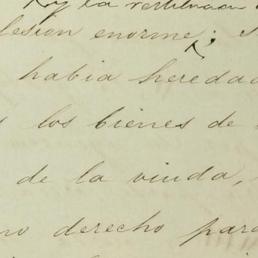 y la restitucion
lesion enorme; s
habia heredad
s los bienes de
de la viuda,
no derecho para